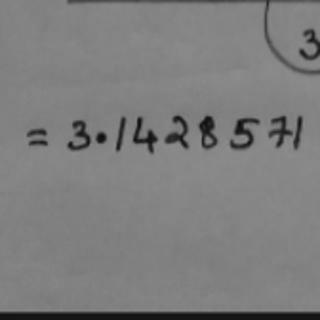 3
= 3.1428571